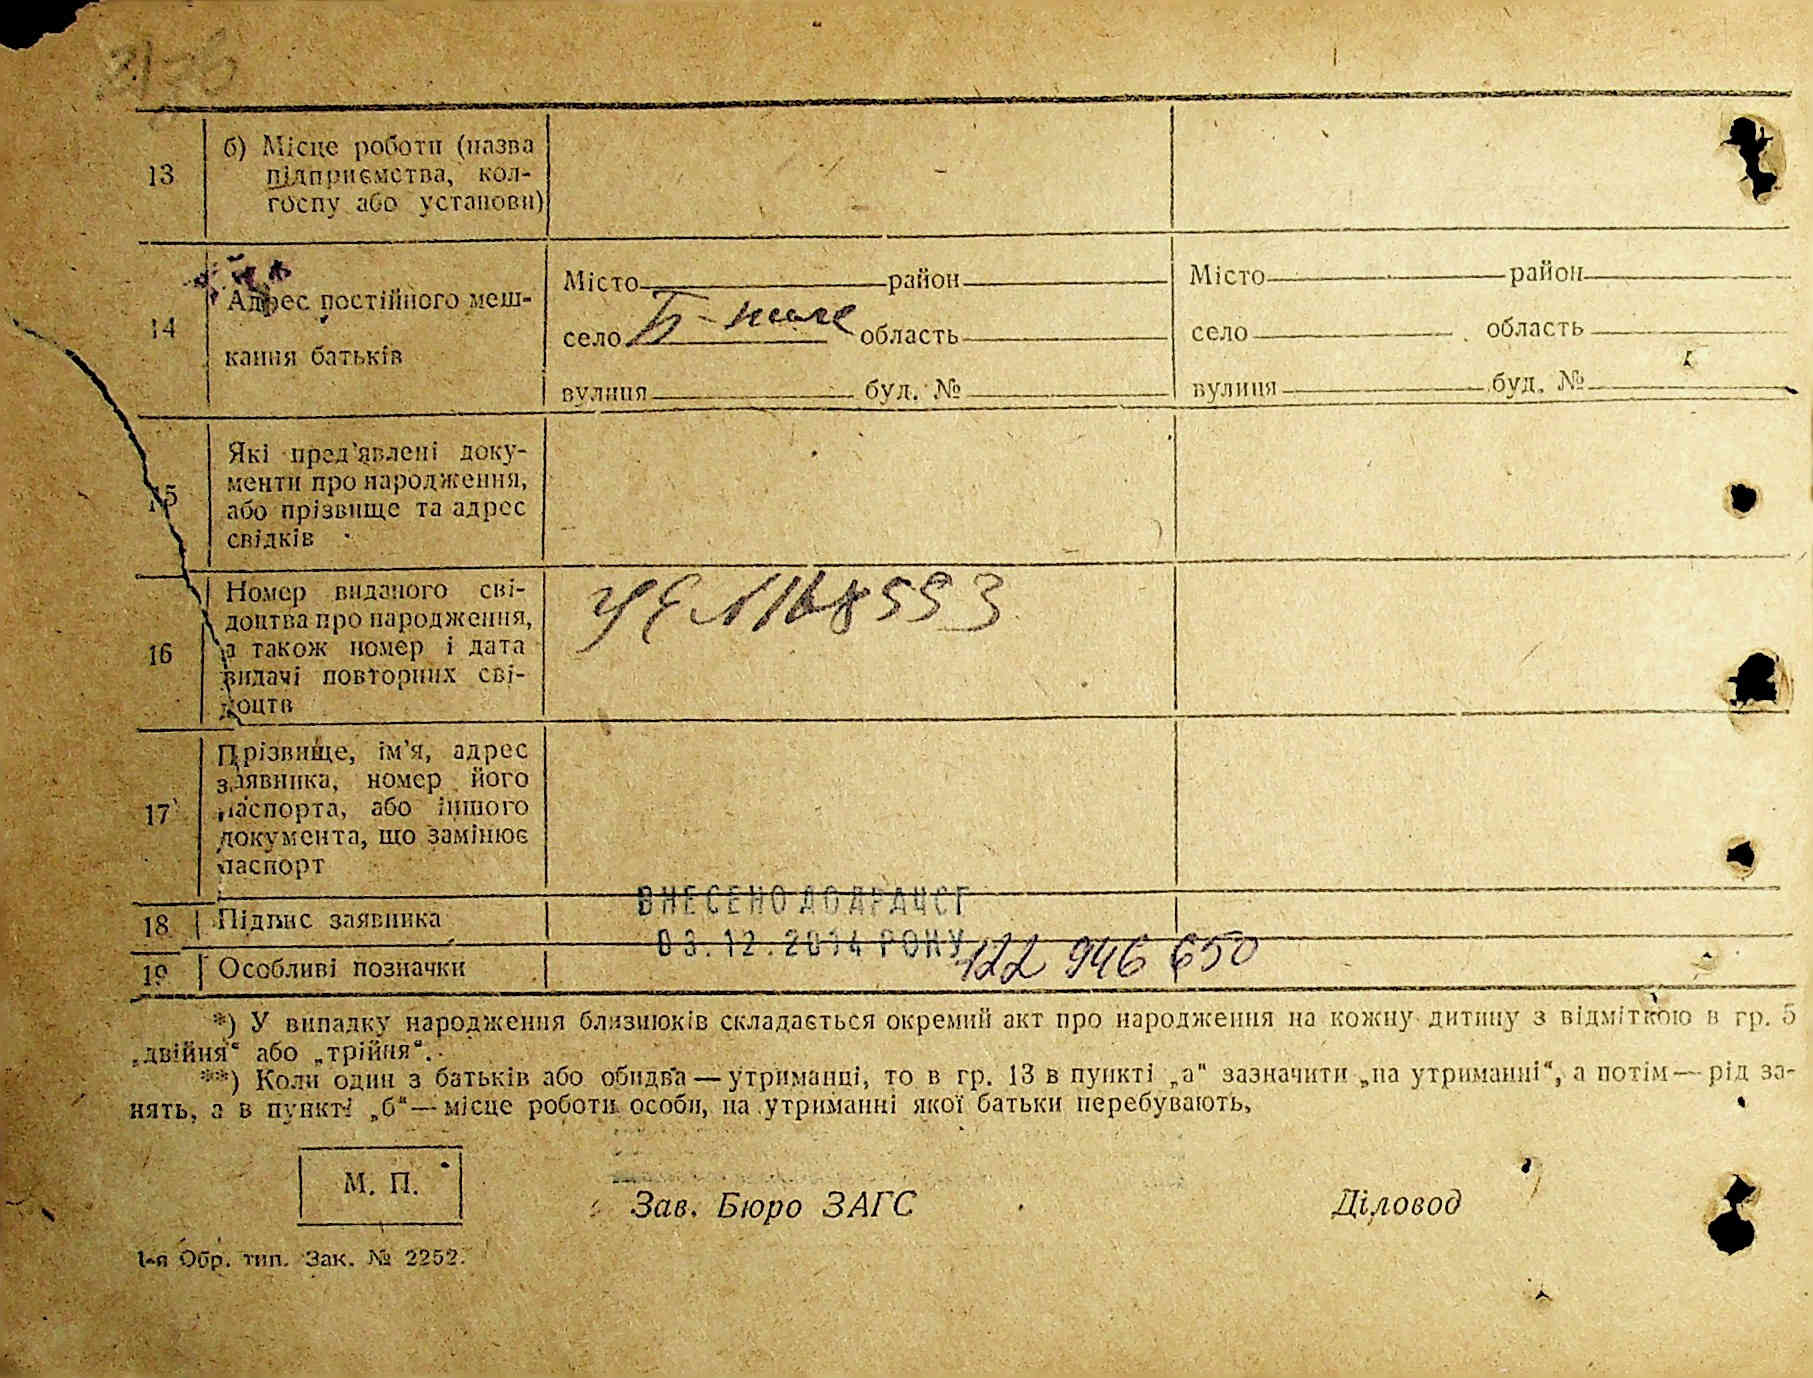 13
б) Місце роботи (назва
підприємства, кол-
госпу або установи)
14
Адрес постійного меш-
кання батьків
Місто район
село Б- область
вулиця буд. №
Місто район
село область
вулиця буд. №
15
Які пред'явлені доку-
менти про народження,
або прізвище та адрес
свідків
16
Номер виданого сві-
доцтва про народження,
а також номер і дата
видачі повторних сві-
доцтв
168553
17
Прізвище, ім'я, адрес
заявника, номер його
паспорта, або іншого
документа, що замінює
паспорт
18
Підпис заявника
ВНЕСЕНО ДО ДРАЦСГ
03.12.2014 РОКУ
19
Особливі позначки
122 946 650
*) У випадку народження близнюків складається окремий акт про народження на кожну дитину з відміткою в гр. 5
„двійня“ або „трійня“.
**) Коли один з батьків або обидва — утриманці, то в гр. 13 в пункті „а“ зазначити „на утриманні“, а потім — рід за-
нять, а в пункті „б“ — місце роботи особи, на утриманні якої батьки перебувають,
М. П.
Зав. Бюро ЗАГС
Діловод
1-я Обр. тип. Зак. № 2252.